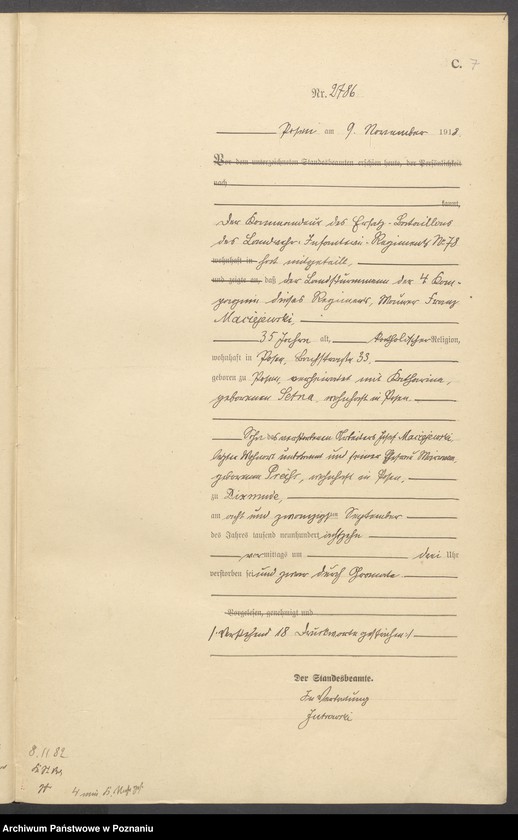 C. 7
Nr. 2786
Posen am 9. November 1918.
Vor dem unterzeichneten Standesbeamten erschien heute, der Persönlichkeit
nach
kannt,
Der Kommandeur des Ersatz-Bataillons
des Landwehr-Infanterie-Regiments No 78
wohnhaft in hat mitgeteilt,
und zeigte an, daß der Landsturmmann der 4 Kom-
pagnie dieses Regiments, Maurer Franz
Maciejewski,
35 Jahre alt, katholischer Religion,
wohnhaft in Posen, Bachstraße 33.
geboren zu Posen, verheiratet mit Katharina,
geborenen Setna, wohnhaft in Posen
Sohn des verstorbenen Arbeiters Josef Maciejewski
letzter Wohnort unbekannt und seiner Ehefrau
geborenen wohnhaft in Posen,
zu Dixmude,
am acht und zwanzigsten September
des Jahres tausend neunhundert achtzehn
vormittags um drei Uhr
verstorben sei und zwar durch Granate
Vorgelesen, genehmigt und
/: Vorstehend 18 Druckworte gestrichen :/
Der Standesbeamte.
In Vertretung
8.11.82
Archiwum Państwowe w Poznaniu